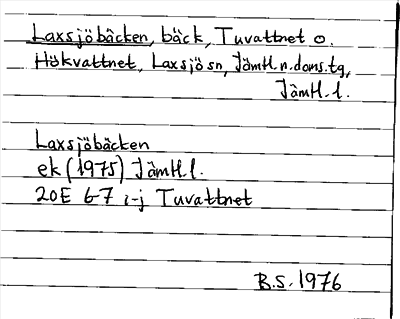 Laxsjöbäcken, bäck, Tuvattnet o.
Hökvattnet, Laxsjö sn, Jämtl.n.doms.tg,
Jämtl.l.
Laxsjöbäcken
ek (1975) Jämtl.l.
20E 6-7 i-j Tuvattnet
B.S. 1976